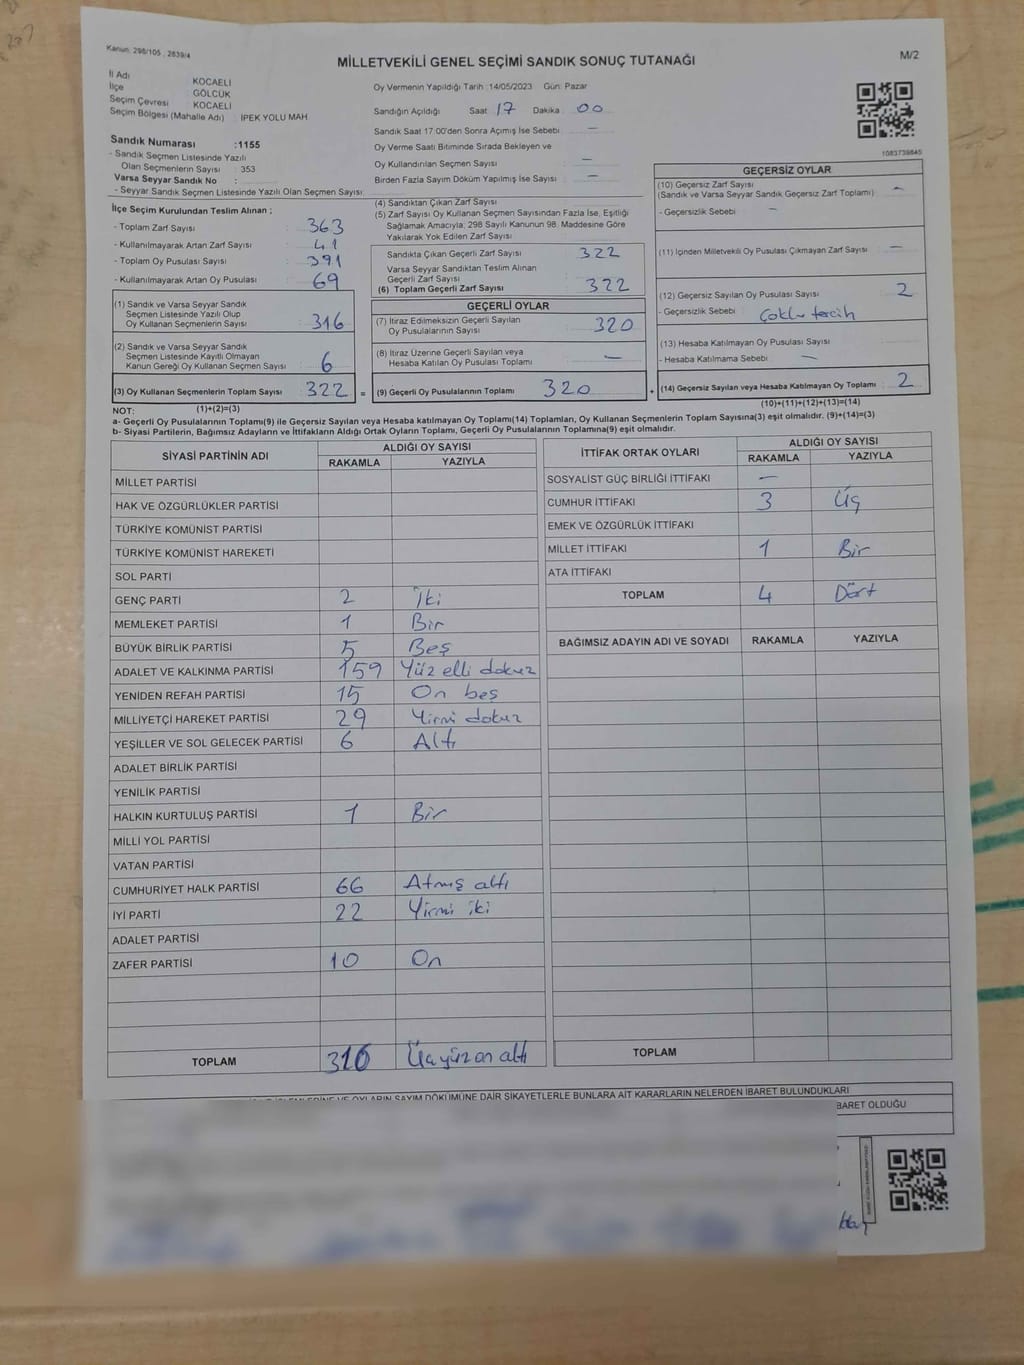 Kanun: 298/105 , 2839/4
MİLLETVEKİLİ GENEL SEÇİMİ SANDIK SONUÇ TUTANAĞI
M/2
İl Adı KOCAELİ
İlçe GÖLCÜK
Seçim Çevresi KOCAELİ
Seçim Bölgesi (Mahalle Adı) : İPEK YOLU MAH
Sandık Numarası :1155
- Sandık Seçmen Listesinde Yazılı
Olan Seçmenlerin Sayısı : 353
Varsa Seyyar Sandık No :
- Seyyar Sandık Seçmen Listesinde Yazılı Olan Seçmen Sayısı:
Oy Vermenin Yapıldığı Tarih :14/05/2023 Gün: Pazar
Sandığın Açıldığı Saat 17 Dakika 00
Sandık Saat 17:00'den Sonra Açımış İse Sebebi : —
Oy Verme Saati Bitiminde Sırada Bekleyen ve
Oy Kullandırılan Seçmen Sayısı : —
Birden Fazla Sayım Döküm Yapılmış İse Sayısı : —
1083739845
İlçe Seçim Kurulundan Teslim Alınan ;
- Toplam Zarf Sayısı : 363
- Kullanılmayarak Artan Zarf Sayısı : 41
- Toplam Oy Pusulası Sayısı : 391
- Kullanılmayarak Artan Oy Pusulası : 69
(1) Sandık ve Varsa Seyyar Sandık
Seçmen Listesinde Yazılı Olup
Oy Kullanan Seçmenlerin Sayısı : 316
(2) Sandık ve Varsa Seyyar Sandık
Seçmen Listesinde Kayıtlı Olmayan
Kanun Gereği Oy Kullanan Seçmen Sayısı : 6
(3) Oy Kullanan Seçmenlerin Toplam Sayısı : 322 =
(4) Sandıktan Çıkan Zarf Sayısı :
(5) Zarf Sayısı Oy Kullanan Seçmen Sayısından Fazla İse, Eşitliği
Sağlamak Amacıyla; 298 Sayılı Kanunun 98. Maddesine Göre
Yakılarak Yok Edilen Zarf Sayısı :
Sandıkta Çıkan Geçerli Zarf Sayısı : 322
Varsa Seyyar Sandıktan Teslim Alınan
Geçerli Zarf Sayısı :
(6) Toplam Geçerli Zarf Sayısı : 322
GEÇERLİ OYLAR
(7) İtiraz Edilmeksizin Geçerli Sayılan
Oy Pusulalarının Sayısı : 320
(8) İtiraz Üzerine Geçerli Sayılan veya
Hesaba Katılan Oy Pusulası Toplamı : —
(9) Geçerli Oy Pusulalarının Toplamı : 320 +
GEÇERSİZ OYLAR
(10) Geçersiz Zarf Sayısı
(Sandık ve Varsa Seyyar Sandık Geçersiz Zarf Toplamı) : —
- Geçersizlik Sebebi : —
(11) İçinden Milletvekili Oy Pusulası Çıkmayan Zarf Sayısı : —
(12) Geçersiz Sayılan Oy Pusulası Sayısı : 2
- Geçersizlik Sebebi : Çoklu tercih
(13) Hesaba Katılmayan Oy Pusulası Sayısı :
- Hesaba Katılmama Sebebi : —
(14) Geçersiz Sayılan veya Hesaba Katılmayan Oy Toplamı : 2
NOT: (1)+(2)=(3) (10)+(11)+(12)+(13)=(14)
a- Geçerli Oy Pusulalarının Toplamı(9) ile Geçersiz Sayılan veya Hesaba katılmayan Oy Toplamı(14) Toplamları, Oy Kullanan Seçmenlerin Toplam Sayısına(3) eşit olmalıdır. (9)+(14)=(3)
b- Siyasi Partilerin, Bağımsız Adayların ve İttifakların Aldığı Ortak Oyların Toplamı, Geçerli Oy Pusulalarının Toplamına(9) eşit olmalıdır.
SİYASİ PARTİNİN ADI ALDIĞI OY SAYISI
RAKAMLA YAZIYLA
MİLLET PARTİSİ
HAK VE ÖZGÜRLÜKLER PARTİSİ
TÜRKİYE KOMÜNİST PARTİSİ
TÜRKİYE KOMÜNİST HAREKETİ
SOL PARTİ
GENÇ PARTİ 2 İki
MEMLEKET PARTİSİ 1 Bir
BÜYÜK BİRLİK PARTİSİ 5 Beş
ADALET VE KALKINMA PARTİSİ 159 Yüz elli dokuz
YENİDEN REFAH PARTİSİ 15 On beş
MİLLİYETÇİ HAREKET PARTİSİ 29 Yirmi dokuz
YEŞİLLER VE SOL GELECEK PARTİSİ 6 Altı
ADALET BİRLİK PARTİSİ
YENİLİK PARTİSİ
HALKIN KURTULUŞ PARTİSİ 1 Bir
MİLLİ YOL PARTİSİ
VATAN PARTİSİ
CUMHURİYET HALK PARTİSİ 66 Atmış altı
İYİ PARTİ 22 Yirmi iki
ADALET PARTİSİ
ZAFER PARTİSİ 10 On
TOPLAM 316 Üçyüz on altı
İTTİFAK ORTAK OYLARI ALDIĞI OY SAYISI
RAKAMLA YAZIYLA
SOSYALİST GÜÇ BİRLİĞİ İTTİFAKI —
CUMHUR İTTİFAKI 3 Üç
EMEK VE ÖZGÜRLÜK İTTİFAKI
MİLLET İTTİFAKI 1 Bir
ATA İTTİFAKI
TOPLAM 4 Dört
BAĞIMSIZ ADAYIN ADI VE SOYADI RAKAMLA YAZIYLA
TOPLAM
OYLARIN SAYIM DÖKÜMÜNE DAİR ŞİKAYETLERLE BUNLARA AİT KARARLARIN NELERDEN İBARET BULUNDUKLARI
İBARET OLDUĞU